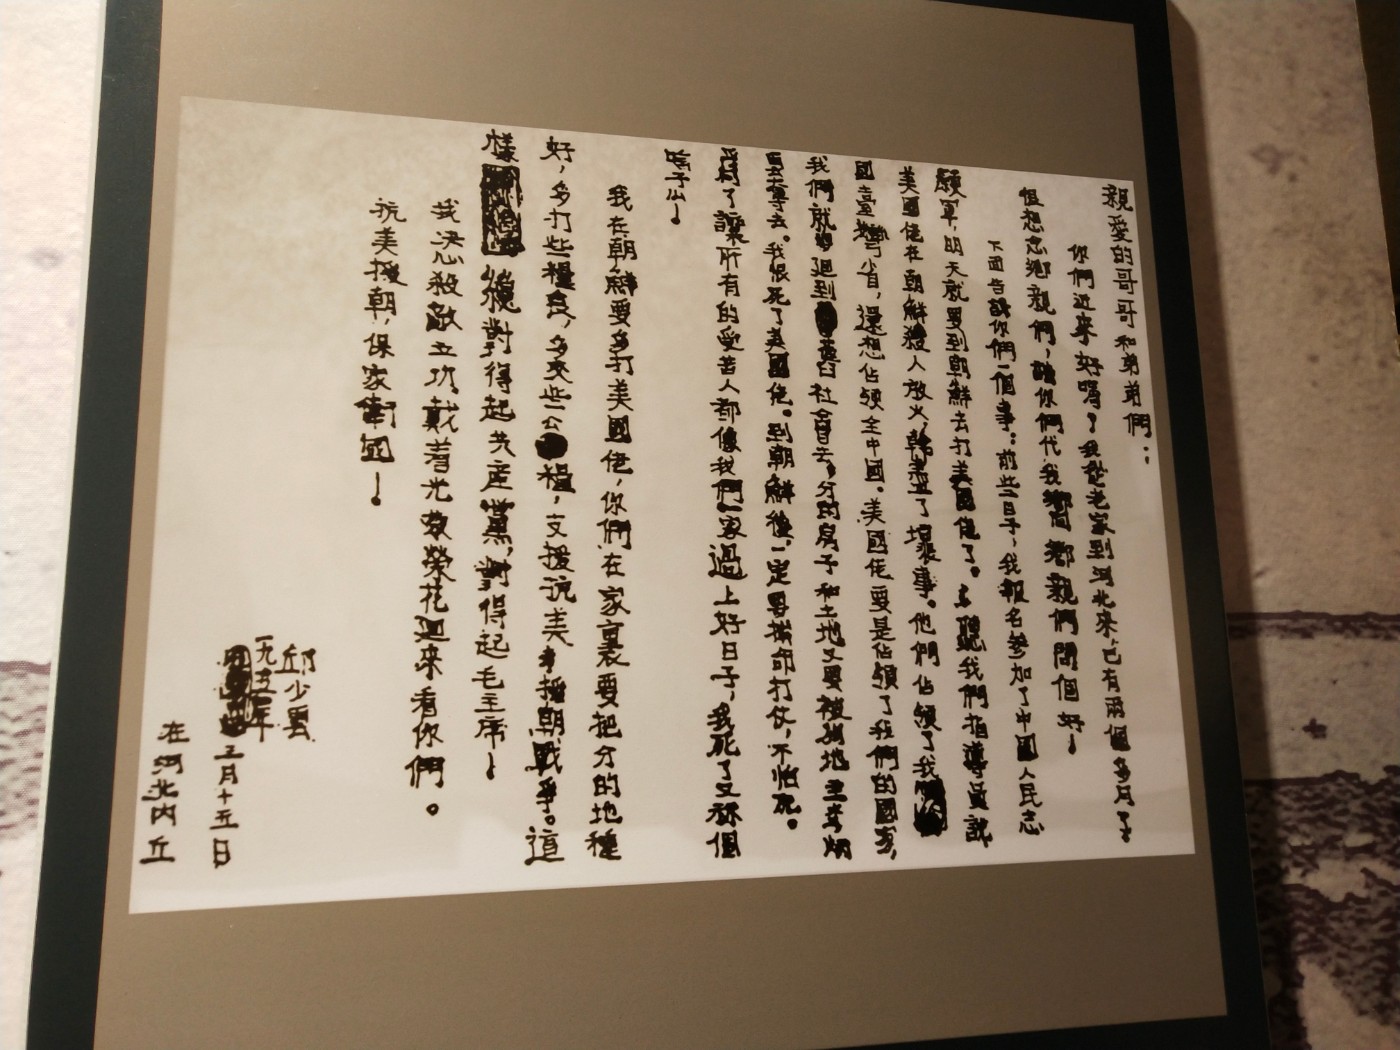 親愛的哥哥和弟弟們：
你們近來好嗎？我從老家到河北來，已有兩個多月了
但想念鄉親們，請你們代我向鄉親們問個好！
下面告訴你們一個事：前些日子，我報名參加了中國人民志
願軍，明天就要到朝鮮去打美國佬了。聽我們指導員說
美國佬在朝鮮殺人放火，幹盡了壞事。他們佔領了我
國臺灣省，還想佔領全中國。美國佬要是佔領了我們的國家，
我們就得迴到舊社會去，分的房子和土地又要被地主
奪去。我恨死了美國佬。到朝鮮後，一定要拚命打仗，不怕死。
了讓所有的受苦人都像我們家過上好日子，我死了又祘個
啥子么！
我在朝鮮要多打美國佬，你們在家裏要把分的地種
好，多打些糧食，多交些公糧，支援抗美援朝戰爭。這
樣纔對得起共産黨，對得起毛主席！
我決心殺敵立功，戴着光榮花迴來看你們。
抗美援朝，保家衛國！
邱少雲
一九五三年
五月十五日
在河北内丘